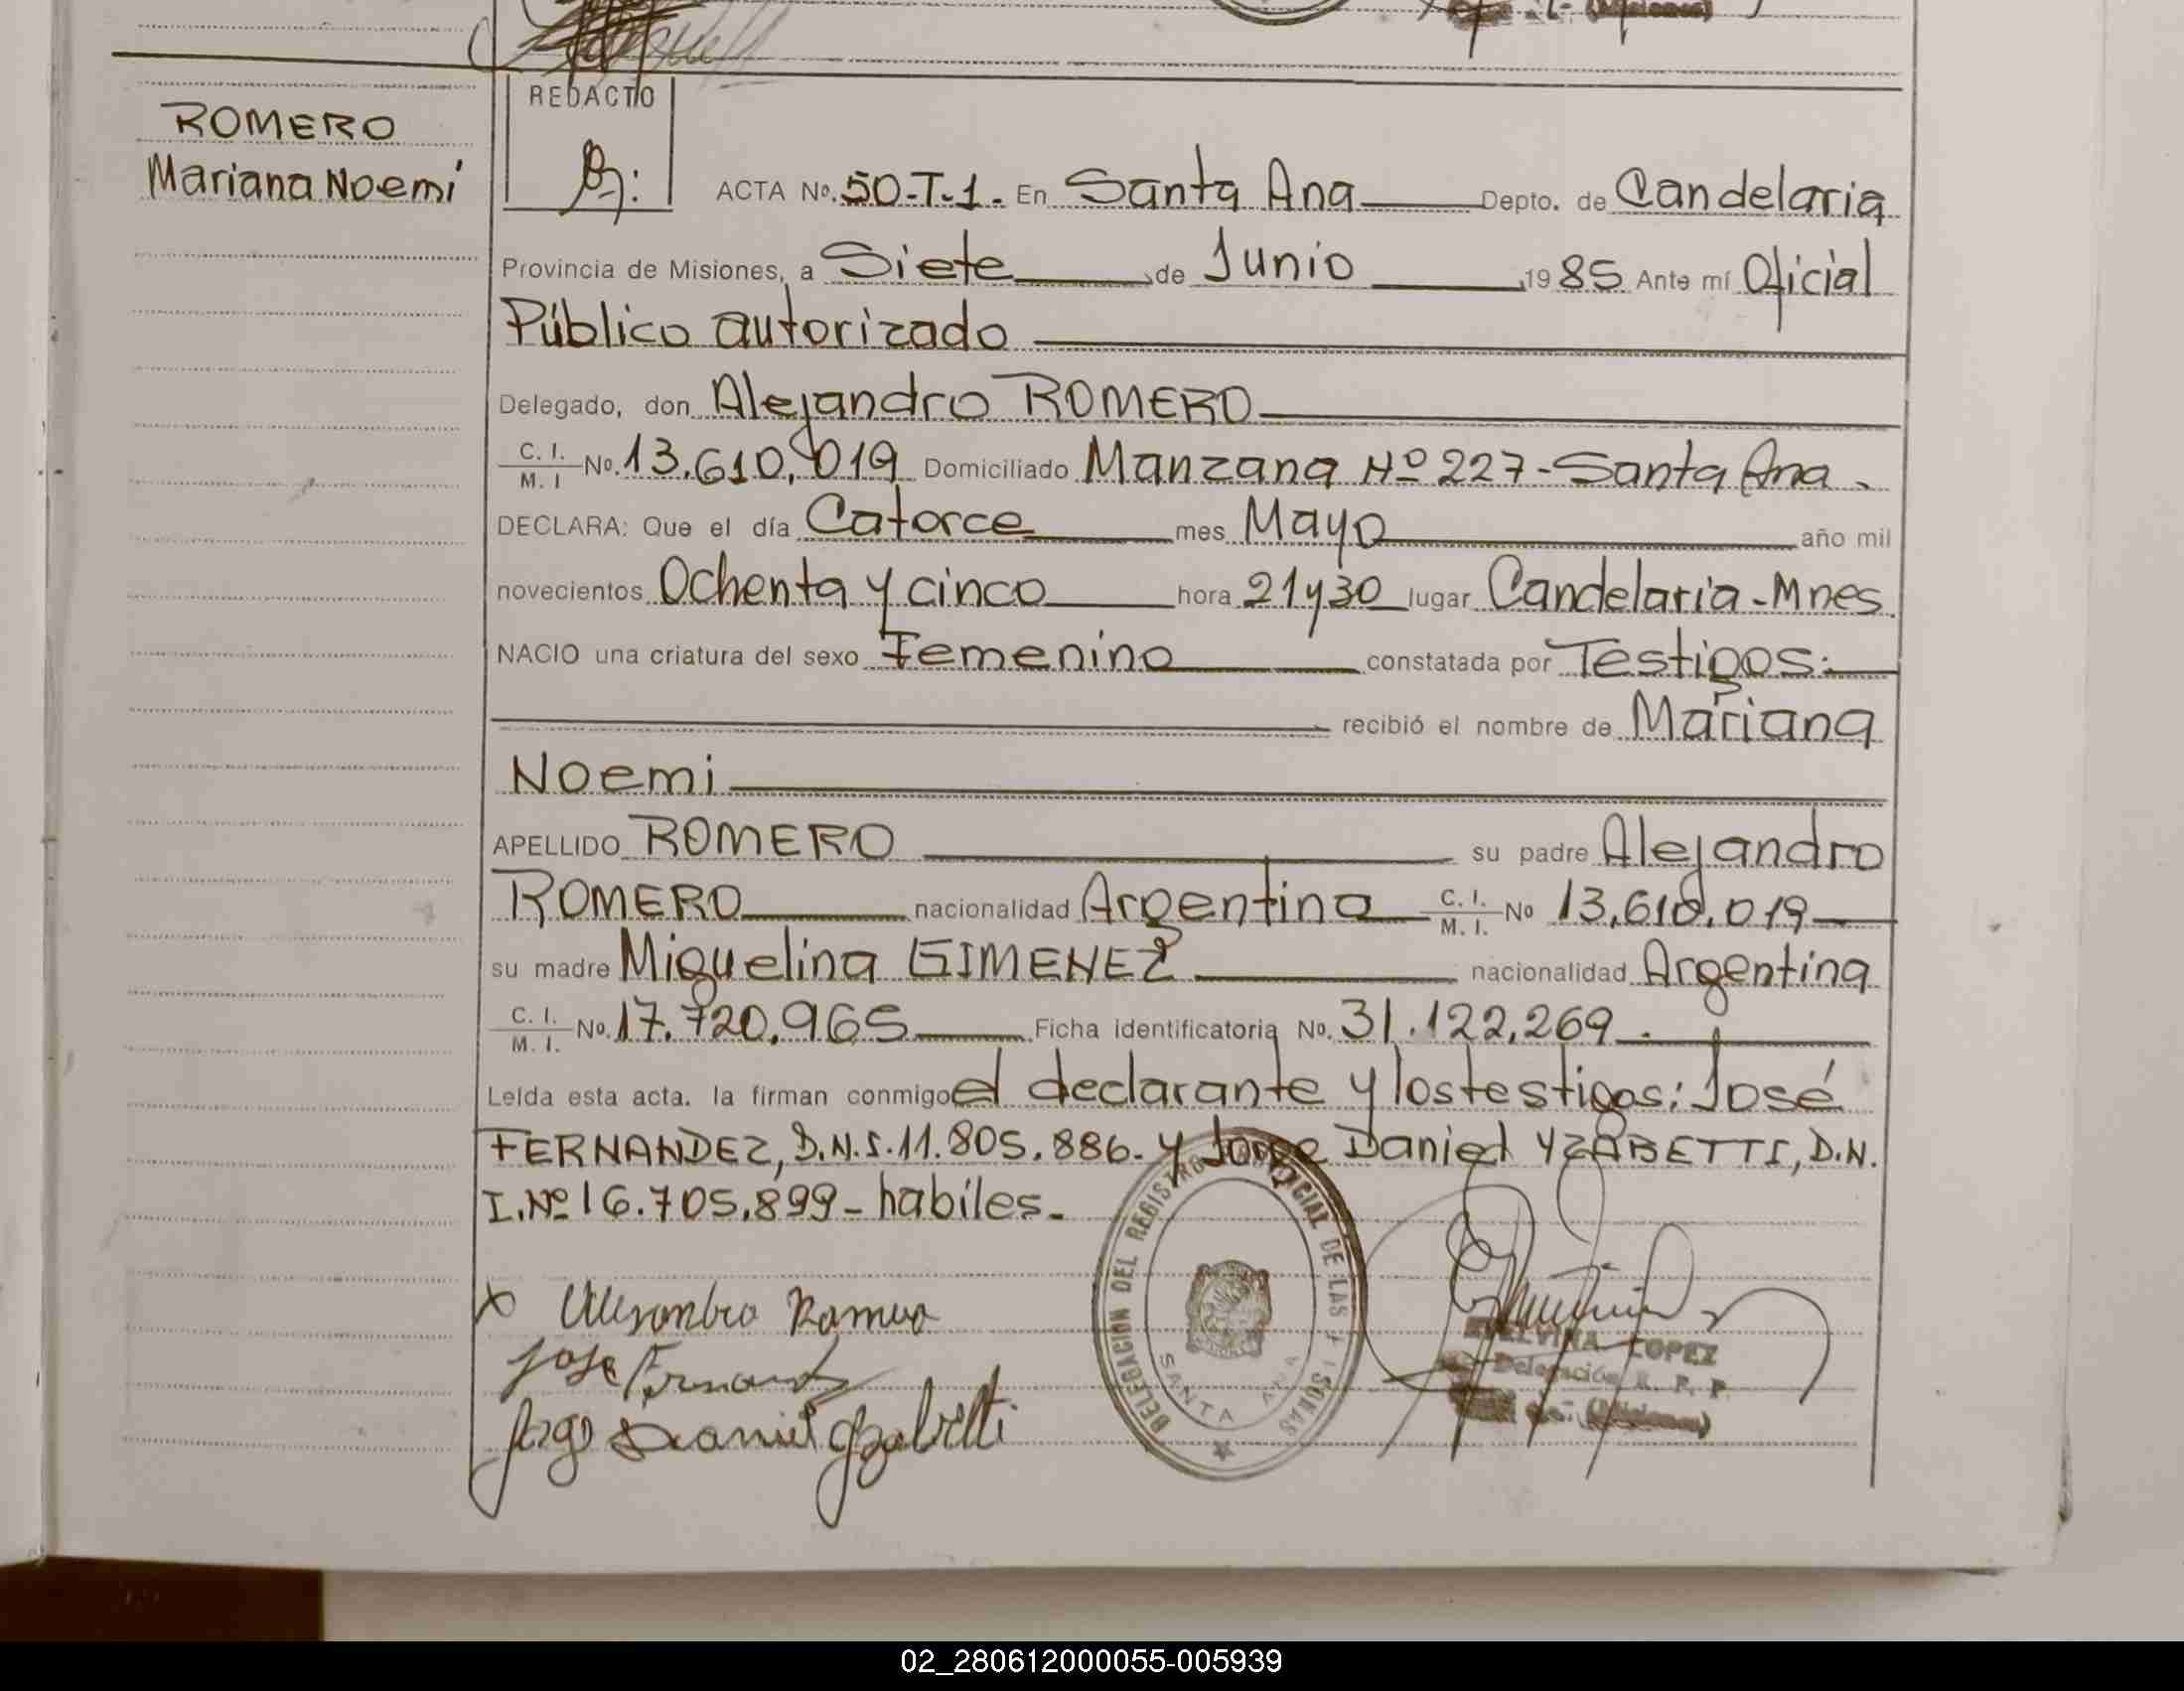 ROMERO
Mariana Noemí
REDACTO
ACTA Nº. 50-T-1. En Santa Ana Depto. de Candelaria
Provincia de Misiones, a Siete de Junio 1985 Ante mí Oficial
Público autorizado
Delegado, don Alejandro ROMERO
C. I. / M. I Nº. 13.610.019 Domiciliado Manzana Nº 227-Santa Ana.
DECLARA: Que el día Catorce mes Mayo año mil
novecientos Ochenta y cinco hora 21 y 30 lugar Candelaria-Mnes
NACIO una criatura del sexo Femenino constatada por Testigos:
recibió el nombre de Mariana
Noemi
APELLIDO ROMERO su padre Alejandro
ROMERO nacionalidad Argentina C. I. / M. I. Nº 13.610.019
su madre Miguelina GIMENEZ nacionalidad Argentina
C. I. / M. I. Nº. 17.720.965 Ficha identificatoria Nº. 31.122.269.
Leída esta acta. la firman conmigo el declarante y los testigos: José
FERNANDEZ, D.N.I. 11.805.886. y Jorge Daniel YZABETTI, D.N.
I. Nº 16.705.899 - habiles.
Alejandro Romero
Jose Fernandez
Jorge Daniel Yzabetti
DELEGACION DEL REGISTRO PROVINCIAL DE LAS PERSONAS
SANTA ANA
ELVINA LOPEZ
Delegación R. P. P.
(Misiones)
02_280612000055-005939